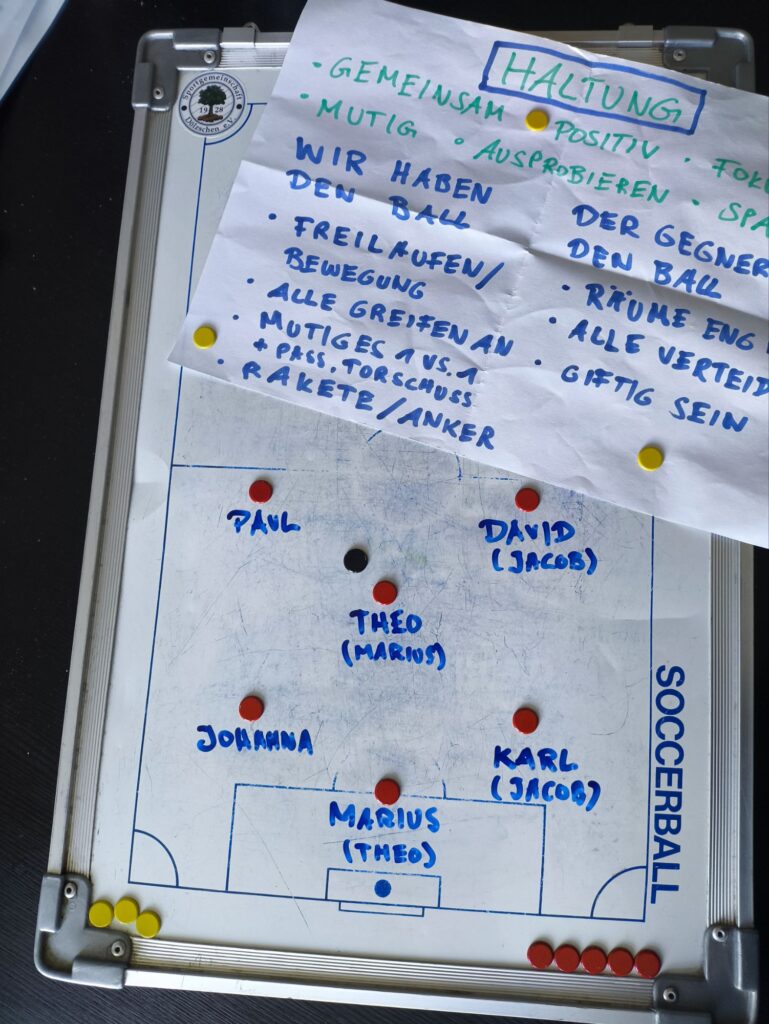 Sportgemeinschaft
1928
Dölzschen e.V.
HALTUNG
• GEMEINSAM • POSITIV • FOKU
• MUTIG • AUSPROBIEREN • SPA
WIR HABEN
DEN BALL
• FREILAUFEN/
BEWEGUNG
• ALLE GREIFEN AN
• MUTIGES 1 VS. 1
+ PASS, TORSCHUSS
• RAKETE/ANKER
DER GEGNER
DEN BALL
• RÄUME ENG
• ALLE VERTEID
• GIFTIG SEIN
PAUL
DAVID
(JACOB)
THEO
(MARIUS)
JOHANNA
KARL
(JACOB)
MARIUS
(THEO)
SOCCERBALL